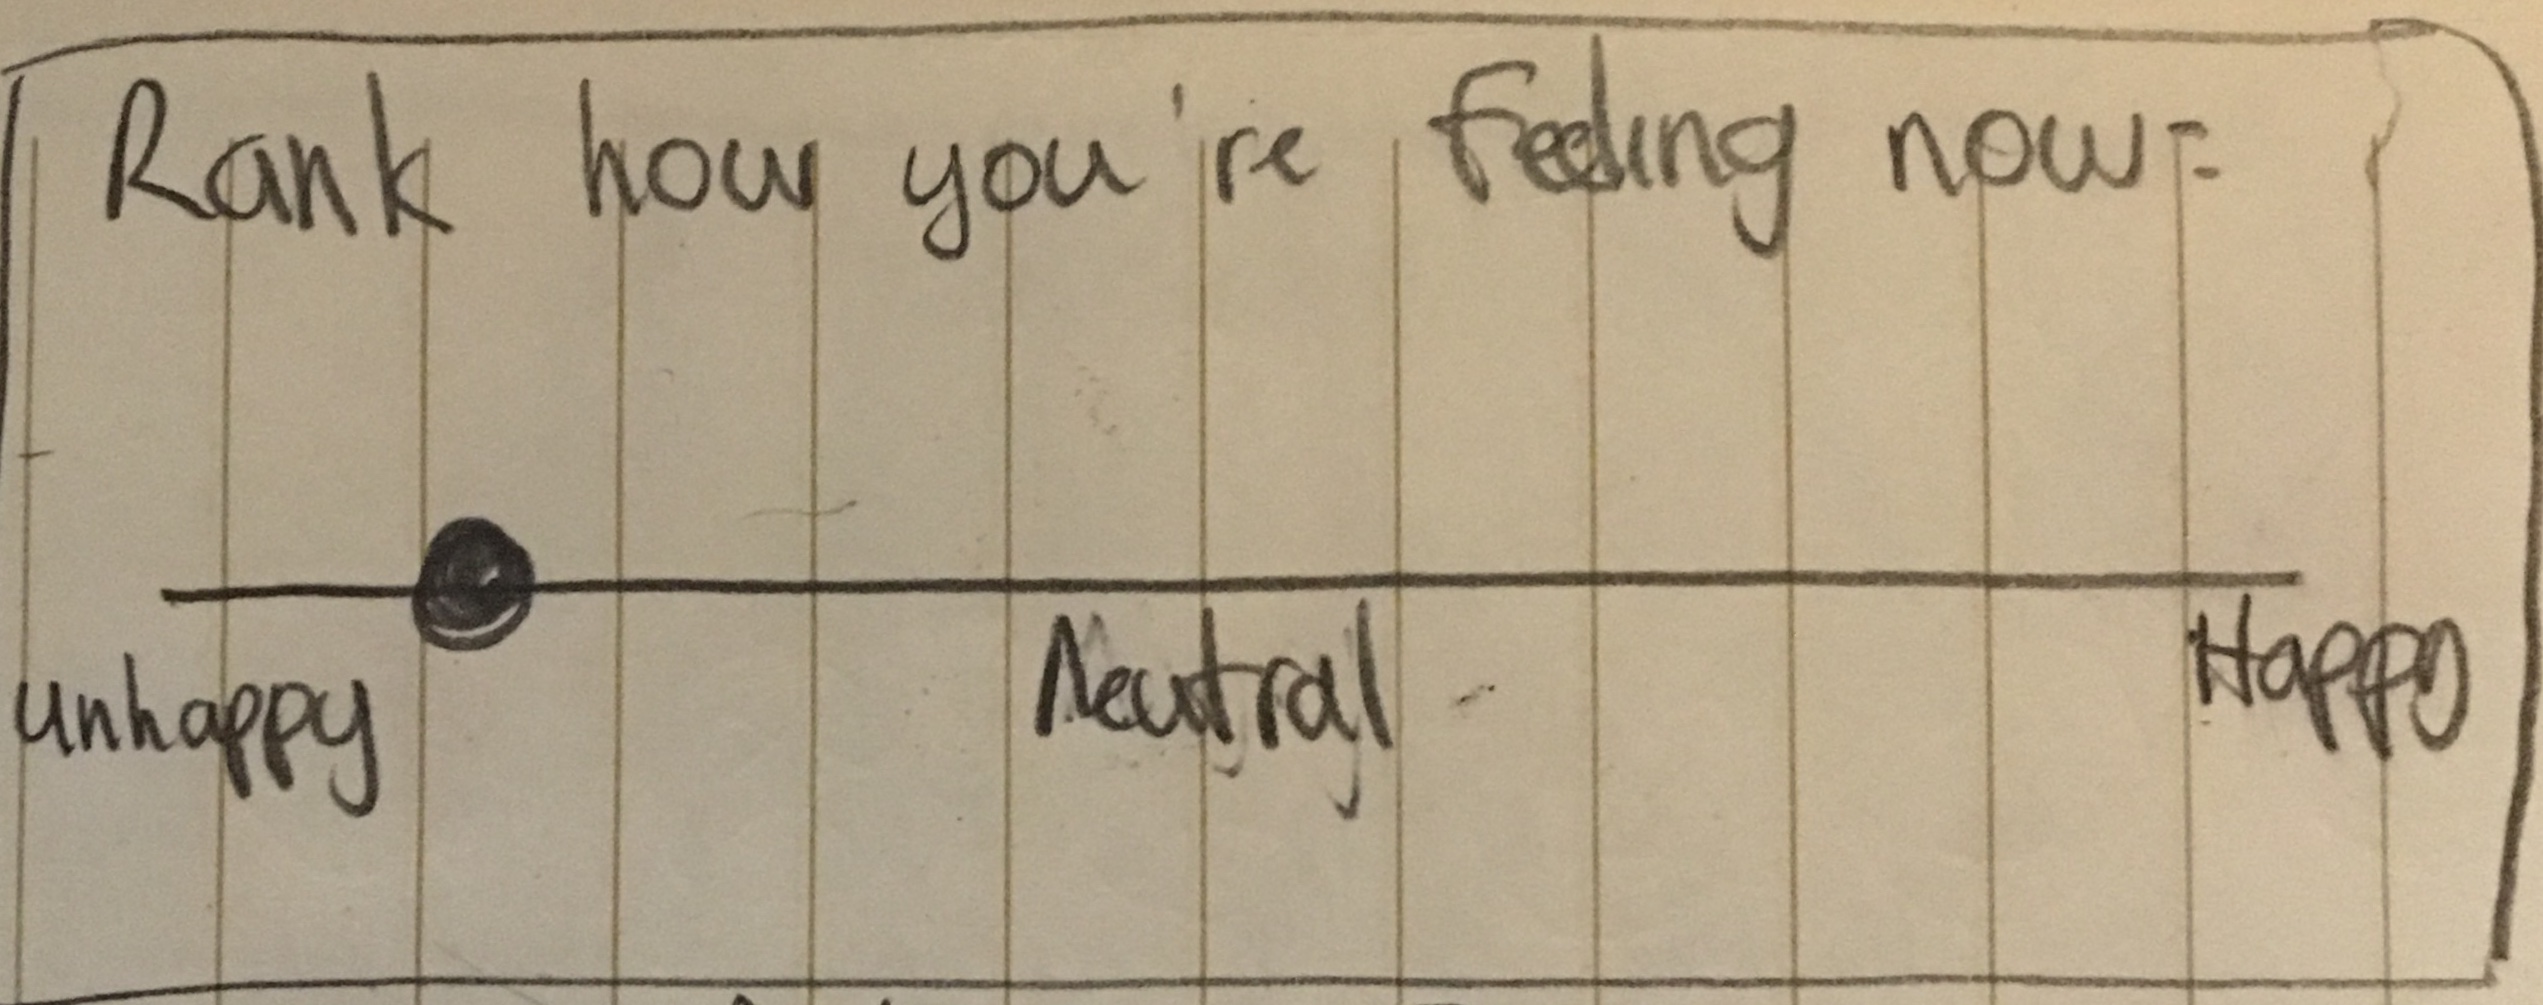 Rank how you're feeling now:
unhappy Neutral Happy